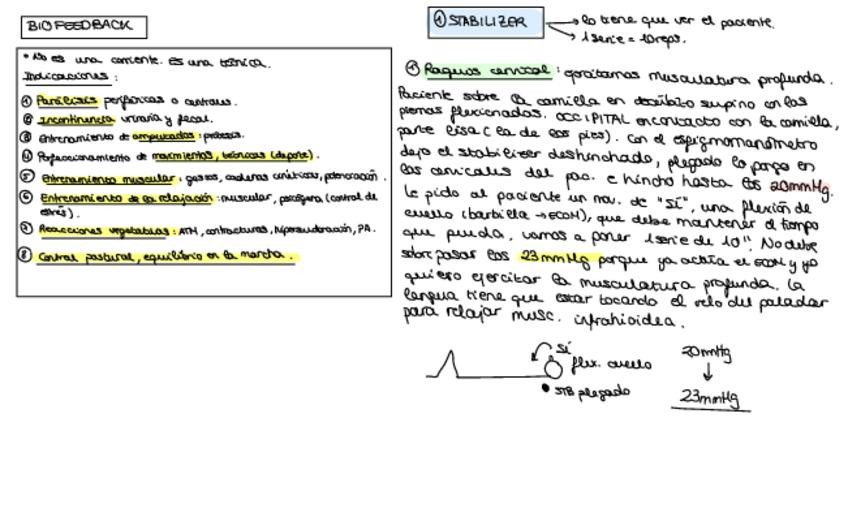 BIOFEEDBACK
• No es una corriente. Es una técnica.
Indicaciones:
① Parálisis periféricas o centrales.
② Incontinencia urinaria y fecal.
③ Entrenamiento de amputados: prótesis.
④ Perfeccionamiento de movimientos, técnicas (deporte).
⑤ Entrenamiento muscular: gestos, cadenas cinéticas, potenciación.
⑥ Entrenamiento de la relajación: muscular, psicógena (control de
estrés).
⑦ Reacciones vegetativas: ATM, contracturas, hipersudoración, PA.
⑧ Control postural, equilibrio en la marcha.
① STABILIZER → lo tiene que ver el paciente.
→ 1 serie = 10 reps.
① Raquis cervical: ejercitamos musculatura profunda.
Paciente sobre la camilla en decúbito supino con las
piernas flexionadas. OCCIPITAL en contacto con la camilla,
parte lisa (la de los pies). Con el esfigmomanómetro
dejo el stabilizer deshinchado, plegado lo pongo en
las cervicales del pac. e hincho hasta los 20mmHg.
Le pido al paciente un mov. de "SÍ", una flexión de
cuello (barbilla → ECOM), que debe mantener el tiempo
que pueda, vamos a poner 1 serie de 10". No debe
sobrepasar los 23 mmHg porque ya actúa el ECOM y yo
quiero ejercitar la musculatura profunda. La
lengua tiene que estar tocando el velo del paladar
para relajar musc. infrahioidea.
SÍ
flex. cuello
• STB plegado
20mmHg
↓
23mmHg